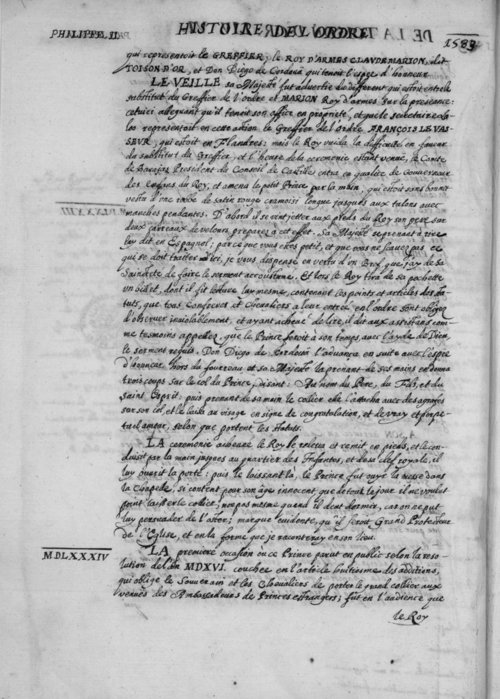 PHILIPPE II.
HISTOIRE DE L'ORDRE
1583
qui representoit le GREFFIER; le ROY D'ARMES CLAUDE MARION, dit
TOISON D'OR, et Don Diego de Cordoüa qui tenoit l'espee d'honneur.
LE VEILLE sa Majesté fut advertie du different qui estoit entre le
substitut du Greffier de l'ordre et MARION Roy d'armes sur la presceance:
cetuici alleguant qu'il tenoit son office en proprieté, et que le secretaire
representoit en cete action le Greffier de l'ordre FRANÇOIS LE VAS-
SEUR, qui estoit en Flandres; mais le Roy vuida la difficulté en faveur
du substitut du Greffier, et l'heure de la ceremonie estant venue, le Conte
de President du Conseil de Castille entra en qualité de Gouverneur
des Enfans du Roy, et amena le petit Prince par la main, qui estoit sans bonnet
vestu d'une robe de satin rouge cramoisi longue jusques aux talons avec
manches pendantes. D'abord il se vint jetter aux pieds du Roy son pere sur
deux carreaux de velours preparez a cet effet. Sa Majesté se prenant à rire
luy dit en Espagnol; par ce que vous estes petit, et que vous ne sçavez pas ce
qui se doit traitter ici, je vous dispense en vertu d'un Bref que j'ay de sa
Sainteté de faire le serment accoustumé. Et lors le Roy tira de sa pochette
un billet, dont il fit lecture luy mesme, contenant les points et articles des Sta-
tuts, que tous Confreres et Chevaliers a leur entrée en l'ordre sont obligez
d'observer inviolablement, et ayant achevé de lire, il dit aux assistans com-
me tesmoins appellez, que le Prince feroit à son temps avec l'ayde de Dieu
le serment requis. Don Diego de Cordoüa l'avança en suite avec l'espée
d'honneur hors du fourreau et sa Majesté la prenant de ses mains en donna
trois coups sur le col du Prince, disant: Au nom du Pere, du Fils, et du
Saint Esprit: puis prenant de sa main le collier elle l'attacha avec
sur son col et le baisa au visage en signe de congratulation, et de vray et perpe-
tuel amour, selon que portent les statuts.
LA ceremonie achevée le Roy le releva et remit en pieds, et le con-
duisit par la main jusques au quartier des Infantes, et de sa clef royale, il
luy ouvrit la porte: puis le laissant là, le Prince fut ouyr la messe dans
la Chapelle, si content pour son âge innocent que de tout le jour il ne voulut
point laisser le collier, non pas mesme quand il alla dormir, car on ne put
luy persuader de l'oster; marque evidente, qu'il seroit Grand Protecteur
de l'Eglise, et en la forme que je raconteray en son lieu.
MDLXXXIV
LA premiere occasion ou ce Prince parut en public selon la reso-
lution de l'an MDXVI. couchée en l'article huitiesme des additions,
qui oblige le Souverain et les Chevaliers de porter le grand collier aux
venues des Ambassadeurs de Princes estrangers; fut en l'audience que
le Roy